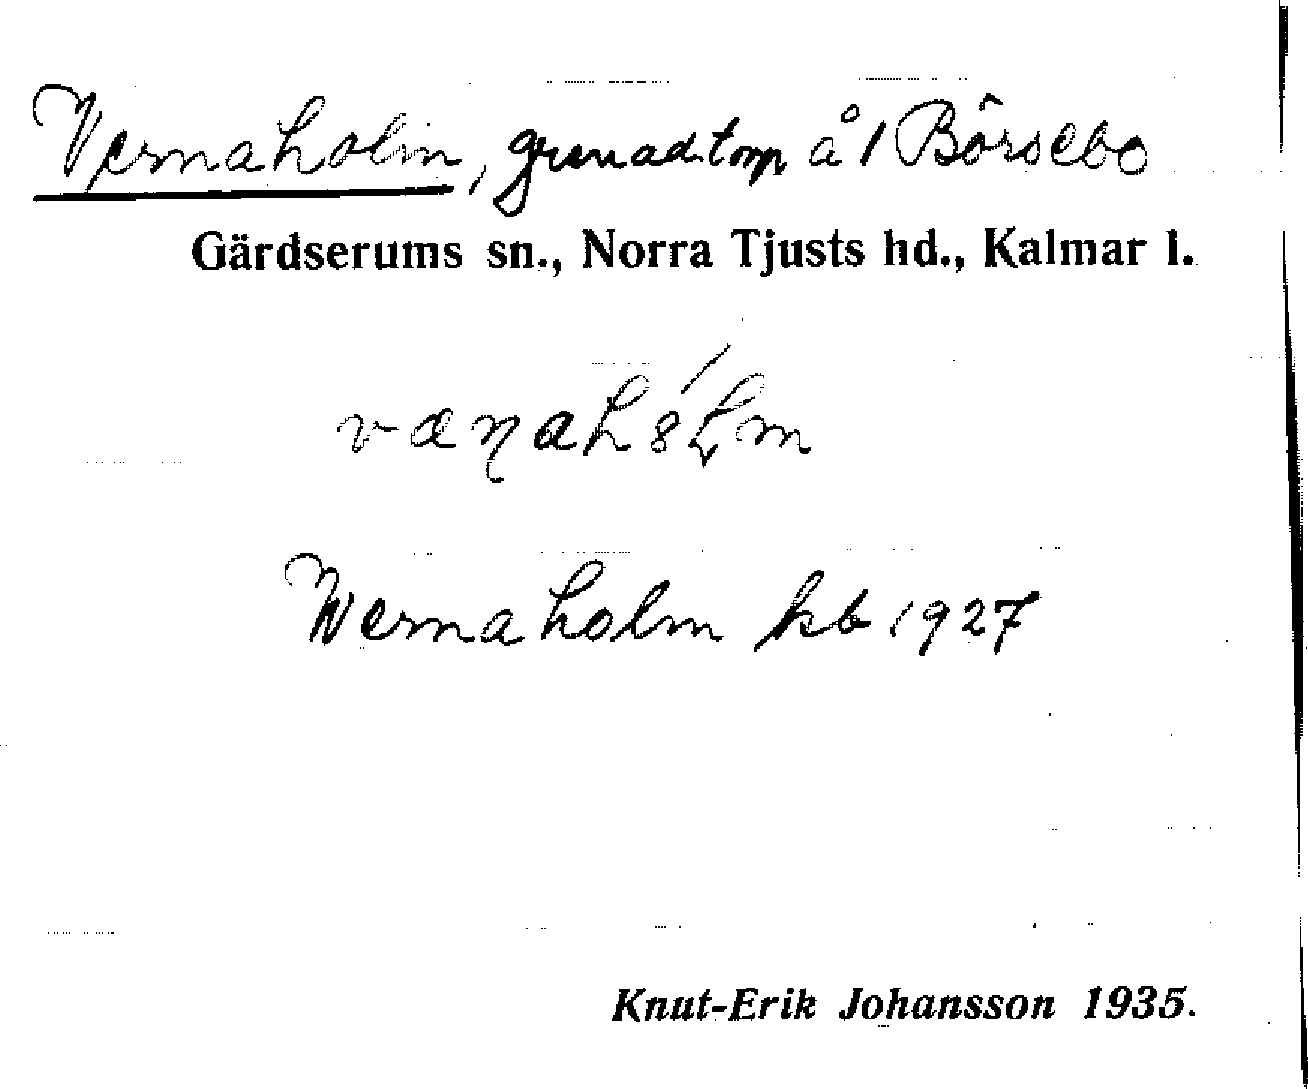 Vernaholm, grenad.torp å 1 Börsebo
Gärdserums sn., Norra Tjusts hd., Kalmar l.
Wernaholm kb 1927
Knut-Erik Johansson 1935.